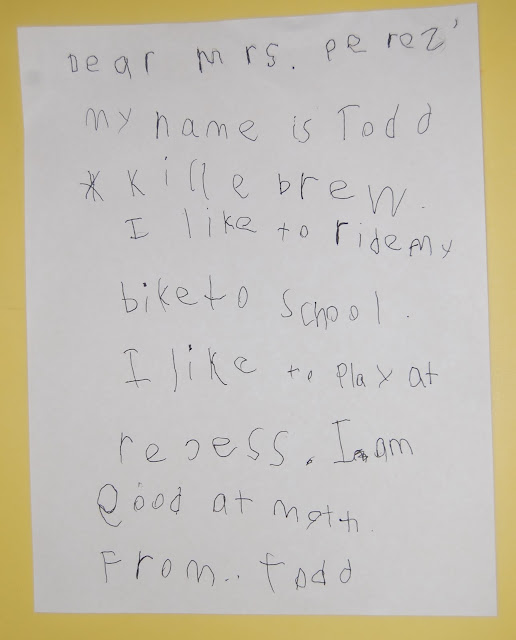 Dear Mrs. Perez'
my name is Todd
* Killebrew.
I like to ride my
bike to school.
I like to play at
recess. I am
Good at math.
From.. Todd